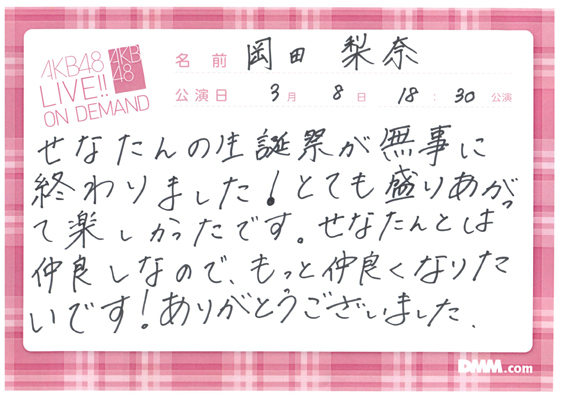 AKB48
LIVE!!
ON DEMAND
AKB
48
名前 岡田 梨奈
公演日 3月 8日 18:30 公演
せなたんの生誕祭が無事に
終わりました!とても盛りあがっ
て楽しかったです。せなたんとは
仲良しなので、もっと仲良くなりた
いです!ありがとうございました.
DMM.com